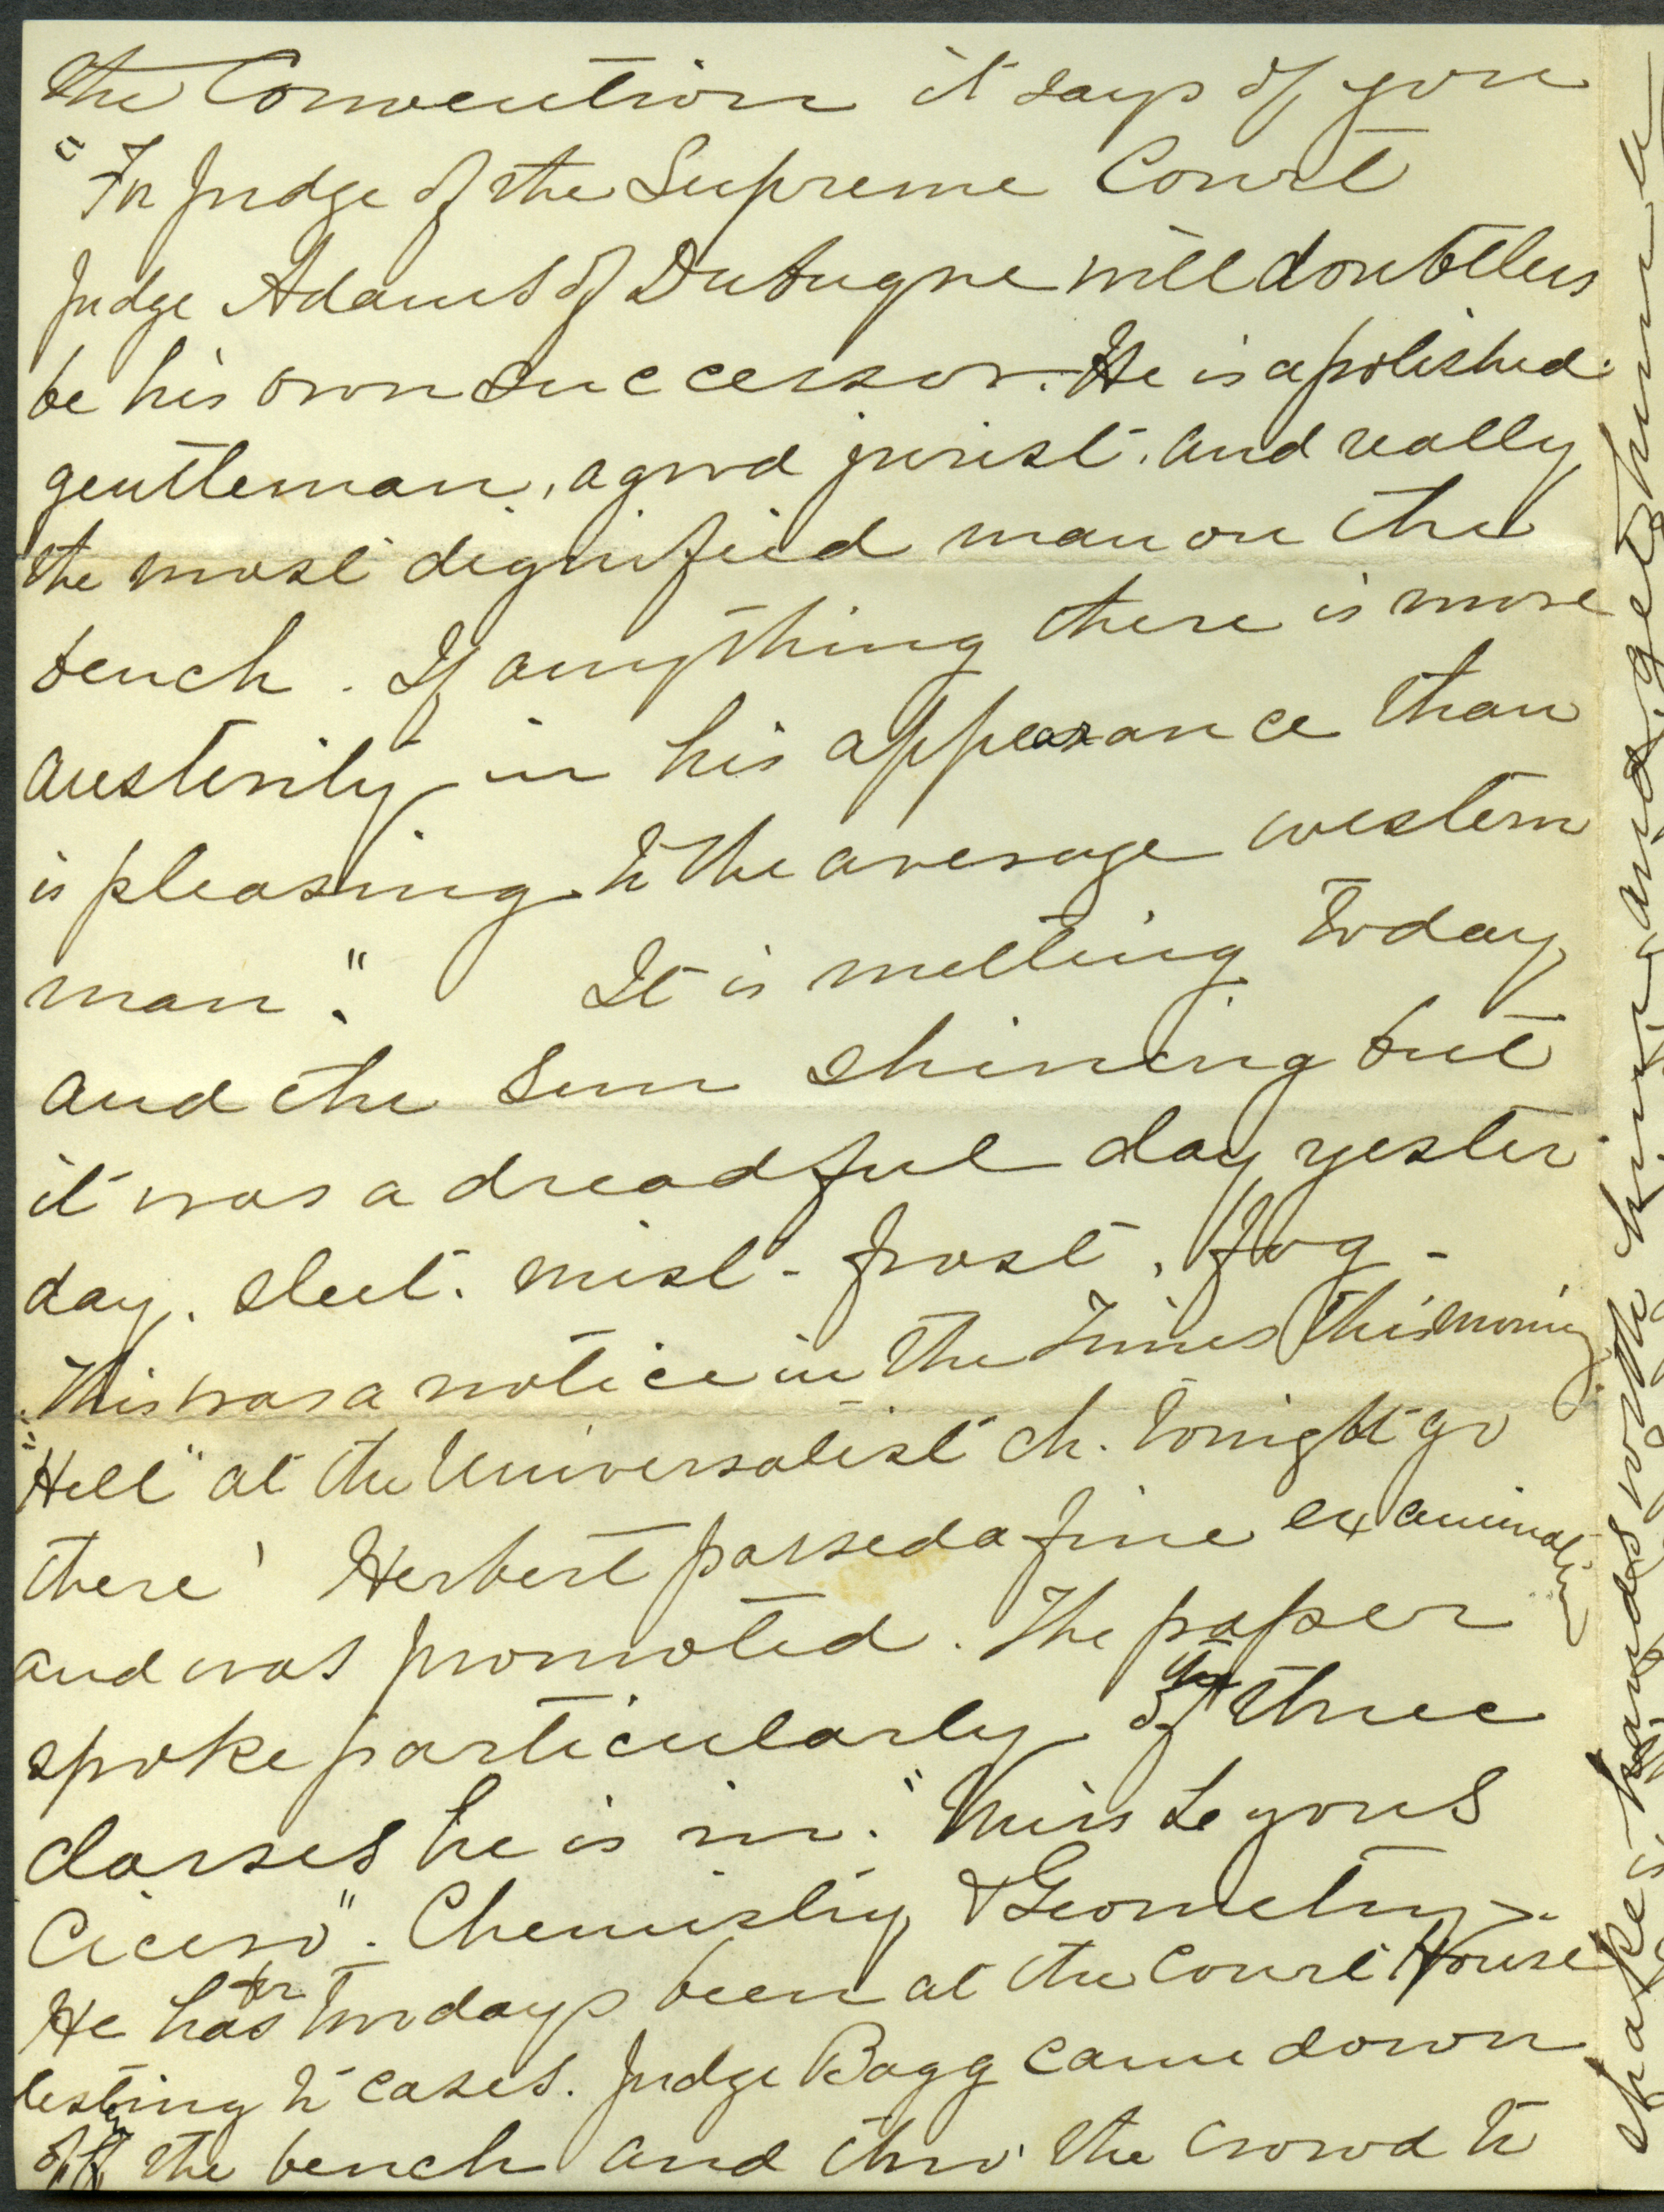 the Convention it says of you
"For Judge of the Supreme Court
Judge Adams of Dubuque will doubtless
be his own successor. He is a polished
gentleman, a good jurist, and really
the most dignified man on the
bench. If anything there is more
austerity in his appearance than
is pleasing to the average western
man". It is melting today
and the sun shining but
it was a dreadful day yester
day. sleet. mist - frost, fog -
This was a notice in the Times this morning
"Hell" at the Universalist ch. tonight go
there' Herbert passed a fine examination
and was promoted. The paper
spoke particularly of the three
classes he is in. "Miss Leyons
Cicero". Chemistry & Geometry.
He has for two days been at the Court House
listening to cases. Judge Bagg came down
off the bench and thro' the crowd to
shake hands with him, and get him